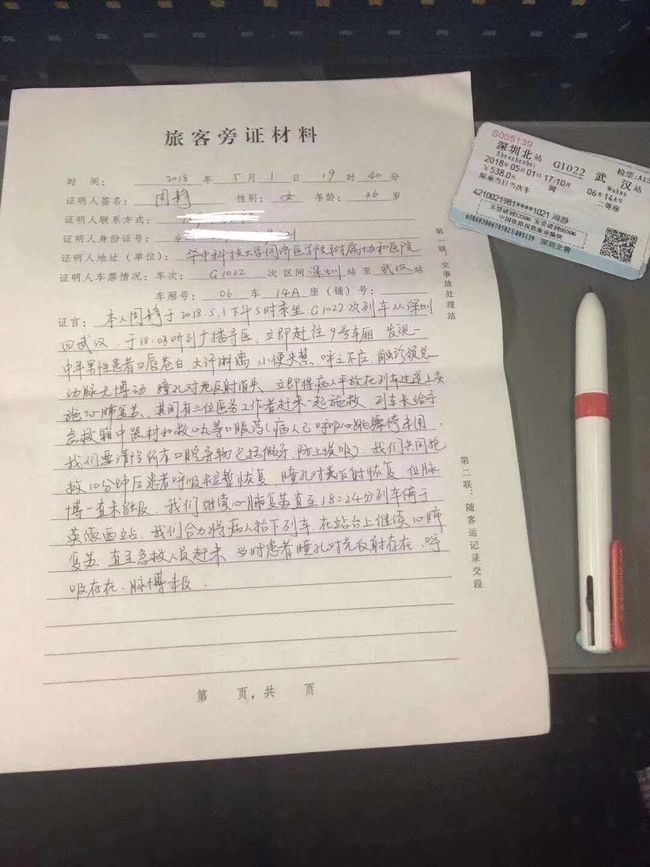 旅客旁证材料
时 间： 2018 年 5 月 1 日 19 时 40 分
证明人签名： 周静 性别： 女 年龄： 36 岁
证明人联系方式：
证明人身份证号：
证明人地址（单位）： 华中科技大学同济医学院附属协和医院
证明人车票情况：车次： G1022 次 区间 深圳 站 至 武汉 站
车厢号： 06 车 14A 座（铺）号：
证言： 本人周静于2018.5.1下午5时乘坐G1022次列车从深圳
回武汉，于18:03听到广播寻医，立即赶往9号车厢，发现一
中年男性患者口唇苍白 大汗淋漓 小便失禁、呼之不应，触诊颈总
动脉无搏动 瞳孔对光反射消失，立即将病人平放在列车过道上实
施心肺复苏，其间有三位医务工作者赶来一起施救，列车长给予
急救箱中器材和救心丸等口服药（病人已呼吸心跳骤停未用
我们要清除所有口腔异物 防止误吸）我们共同抢
救10分钟后患者呼吸 恢复，瞳孔对光反射恢复，但脉
搏一直未能及，我们继续心肺复苏直至18:24分列车停于
英德西站，我们合力将病人抬下列车，在站台上继续心肺
复苏，直至急救人员赶来，当时患者瞳孔对光反射存在、呼
吸存在、脉搏未及．
第 页，共 页
第一联：交事故处理站
第二联：随客运记录交段
S005139
检票：A13
深圳北站 G1022 武汉站
Shenzhenbei Wuhan
2018年05月01日 17:10开 06车14A号
￥538.0元 网 二等座
限乘当日当次车
4210021981****1021 周静
发票请到12306 发货请到95306
中国铁路祝您旅途愉快
深圳北售